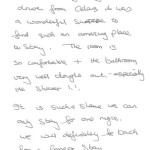 drive from Calais it was
a wonderful surprise to
find such an amazing place
to stay. The room is
so comfortable + the bathroom
very well thought out - especially
the shower !!.
It is such a shame we can
only stay for one night,
we will definitely be back
for a longer stay.